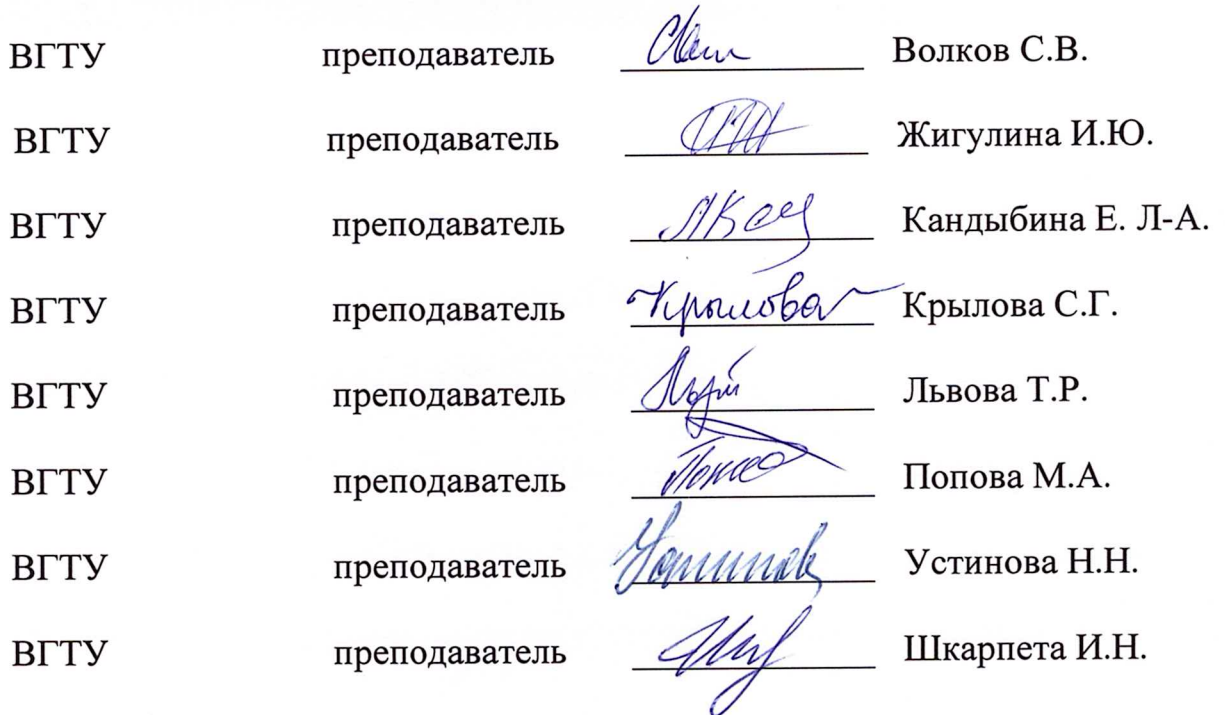 ВГТУ преподаватель Волков С.В.
ВГТУ преподаватель Жигулина И.Ю.
ВГТУ преподаватель Кандыбина Е. Л-А.
ВГТУ преподаватель Крылова Крылова С.Г.
ВГТУ преподаватель Львова Т.Р.
ВГТУ преподаватель Попова М.А.
ВГТУ преподаватель Устинова Н.Н.
ВГТУ преподаватель Шкарпета И.Н.